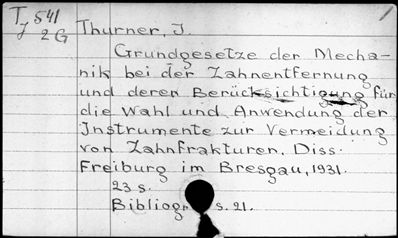 T 541
J 2G
Thurner, J.
Grundgesetze der Mecha-
nik bei der Zahnentfernung
und deren Berücksichtigung für
die Wahl und Anwendung der
Instrumente zur Vermeidung
von Zahnfrakturen. Diss.
Freiburg im Bresgau, 1931.
23 s.
Bibliogr s. 21.